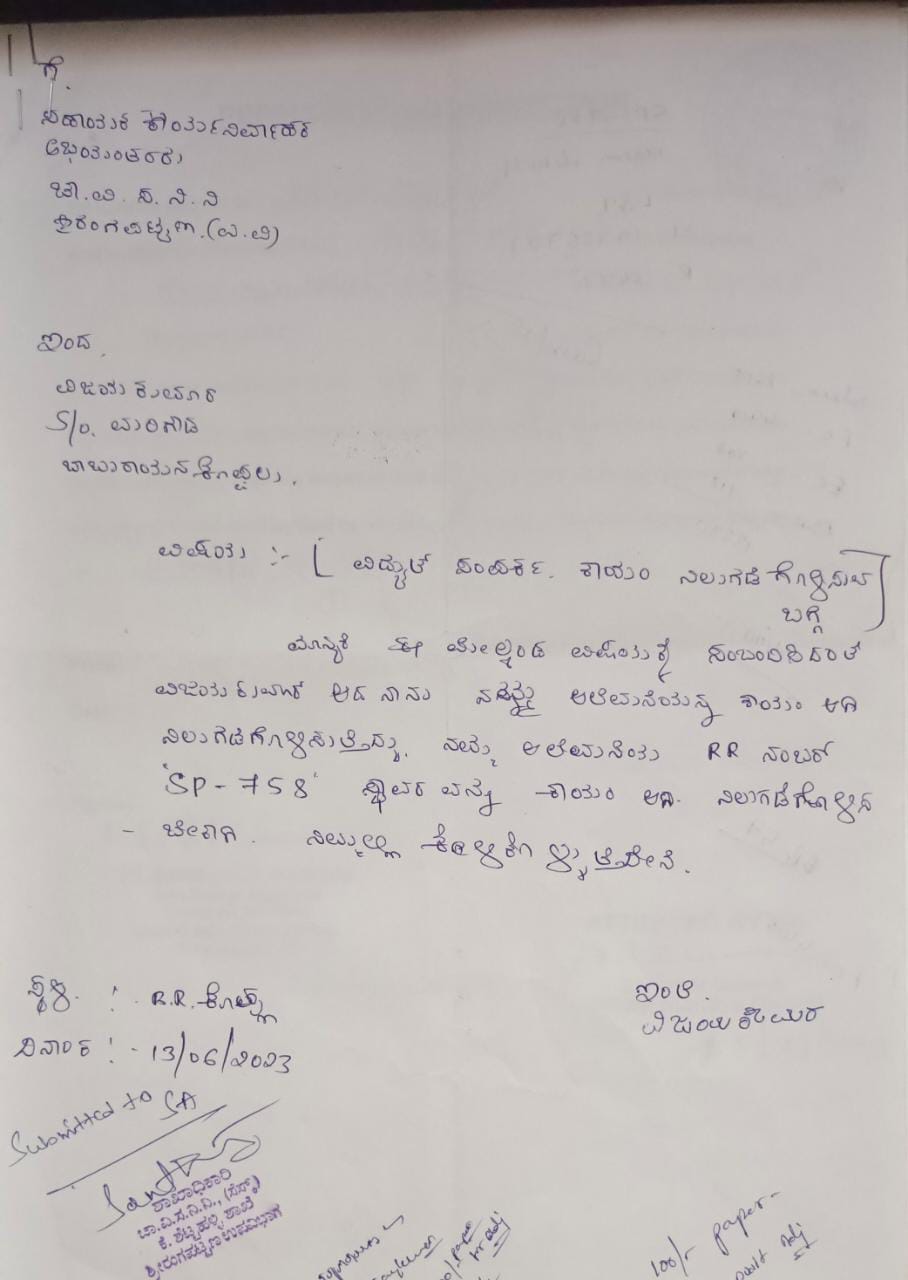 ಗೆ.
ಸಹಾಯಕ ಕಾರ್ಯನಿರ್ವಾಹಕ
ಅಭಿಯಂತರರು
ಚಾ.ವಿ.ಸ.ನಿ.ನಿ
ಶ್ರೀರಂಗಪಟ್ಟಣ.(ಎ.ವಿ)
ಇಂದ.
ವಿಜಯಕುಮಾರ
S/o. ಮರಿಗೌಡ
ಬಾಬುರಾಯನಕೊಪ್ಪಲು.
ವಿಷಯ :- [ ವಿದ್ಯುತ್ ಸಂಪರ್ಕ. ಕಾಯಂ ನಿಲುಗಡೆಗೊಳ್ಳಿಸುವ
ಬಗ್ಗೆ ]
ಮಾನ್ಯರೆ ಈ ಮೇಲ್ಕಂಡ ವಿಷಯಕ್ಕೆ ಸಂಬಂದಿಸಿದಂತೆ
ವಿಜಯಕುಮಾರ್ ಆದ ನಾನು ಆಲೆಮನೆಯನ್ನ ಕಾಯಂ ಆಗಿ
ನಿಲುಗಡೆಗೊಳ್ಳಿಸುತ್ತಿದ್ದು. ನಮ್ಮ ಆಲೆಮನೆಯ RR ನಂಬರ್
'SP-758' ಸ್ಥಾವರವನ್ನು ಕಾಯಂ ಆಗಿ. ನಿಲುಗಡೆಗೊಳ್ಳಿಸ
- ಬೇಕಾಗಿ. ನಿಮ್ಮಲ್ಲಿ ಕೇಳಿಕೊಳ್ಳುತ್ತೇನೆ.
ಸ್ಥಳ. : R.R.ಕೊಪ್ಪಲ್ಲು
ದಿನಾಂಕ :- 13/06/2023
ಇಂತಿ.
ವಿಜಯಕುಮಾರ
Submitted to SA
ಶಾಖಾಧಿಕಾರಿ
ಚಾ.ವಿ.ಸ.ನಿ.ನಿ.,
ಕೆ. ಶೆಟ್ಟಹಳ್ಳಿ ಶಾಖೆ
ಶ್ರೀರಂಗಪಟ್ಟಣ ಉಪವಿಭಾಗ
100/- paper-